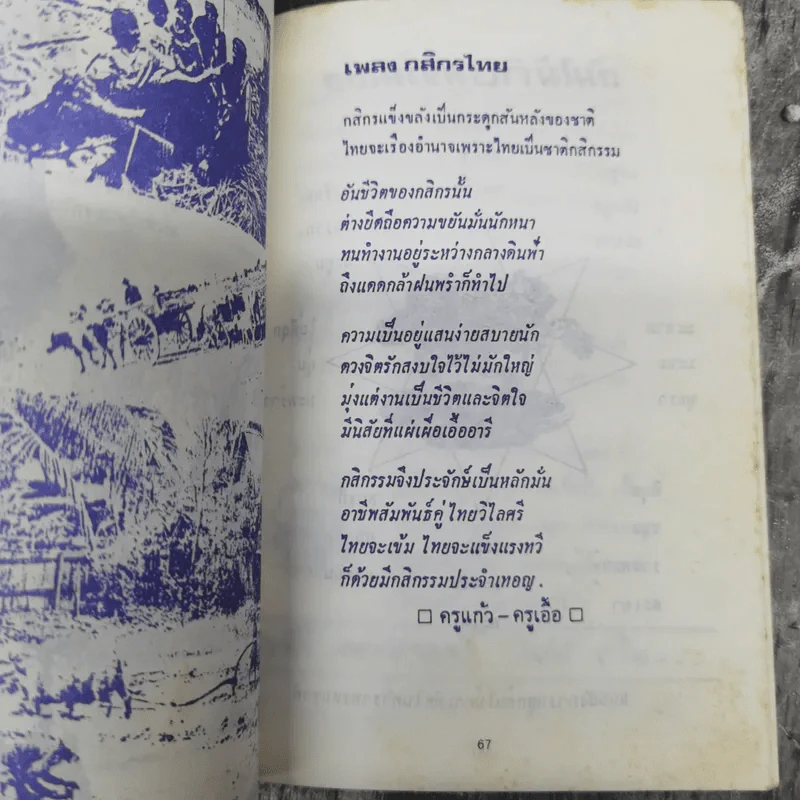 เพลง กสิกรไทย
กสิกรแข็งขลังเป็นกระดูกสันหลังของชาติ
ไทยจะเรืองอำนาจเพราะไทยเป็นชาติกสิกรรม
อันชีวิตของกสิกรนั้น
ต่างยึดถือความขยันมั่นนักหนา
ทนทำงานอยู่ระหว่างกลางดินฟ้า
ถึงแดดกล้าฝนพรำก็ทำไป
ความเป็นอยู่แสนง่ายสบายนัก
ดวงจิตรักสงบใจไว้ไม่มักใหญ่
มุ่งแต่งานเป็นชีวิตและจิตใจ
มีนิสัยที่แผ่เผื่อเอื้ออารี
กสิกรรมจึงประจักษ์เป็นหลักมั่น
อาชีพสัมพันธ์คู่ไทยวิไลศรี
ไทยจะเข้ม ไทยจะแข็งแรงทวี
ก็ด้วยมีกสิกรรมประจำเทอญ .
□ ครูแก้ว – ครูเอื้อ □
67